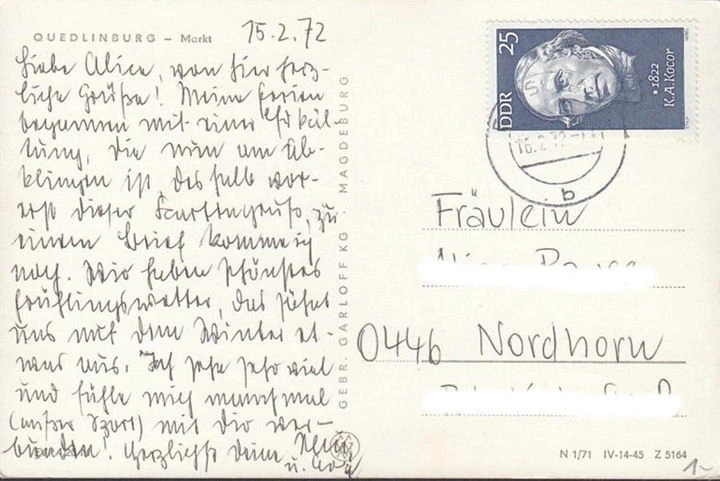 QUEDLINBURG – Markt
15.2.72
Liebe Alice, von hier herz-
liche Grüße! Meine Ferien
begannen mit einer Erkäl-
tung, die nun am Ab-
klingen ist, deshalb vor-
erst dieser Kartengruß, zu
einem Brief komme ich
noch. Wir haben schönstes
Frühlingswetter, das söhnt
uns mit dem Winter et-
was aus. Ich sehe sehr viel
und fühle mich manchmal
(außer Sport) mit dir ver-
bunden! Herzlichst Deine
u.
GEBR. GARLOFF KG MAGDEBURG
25
DDR
*1822
K.A. Kocor
16.2.72
b
Fräulein
0446 Nordhorn
N 1/71 IV-14-45 Z 5164
1-